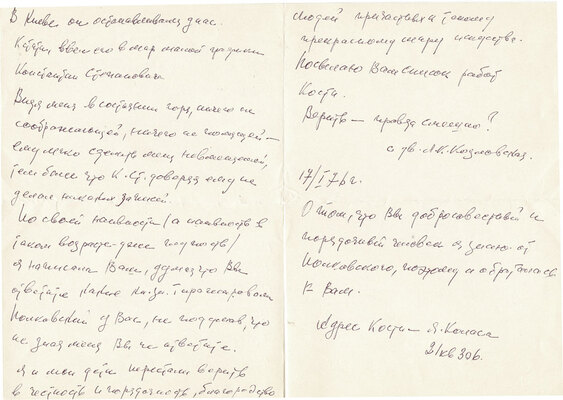 В Киеве он останавливался у нас.
Кстати ввел его в мир малой графики
Константин Степанович
Видя меня в состоянии горя, ничего не
соображающей, ничего не помнящей –
ему легко сделать меня невменяемой,
тем более что К. Ст. доверял ему не
делая никаких записей.
По своей наивности /а наивность в
таком возрасте – даже глупость/
я написала Вам, думая, что Вы
ответите какие кн. зн. тиражировали
Полковский у Вас, не подумав, что
не зная меня Вы не ответите.
Я и мои дети перестали верить
в честность и порядочность, благородство
людей причастных к такому
прекрасному миру искусства.
Посылаю Вам список работ
Кости.
Верить – правда смешно?
с ув. А.К. Козловская.
17/I 76 г.
О том, что Вы добросовестный и
порядочный человек я знаю от
Полковского, поэтому и обратилась
к Вам.
Адрес Кости – Я. Коласа
21 кв 306.